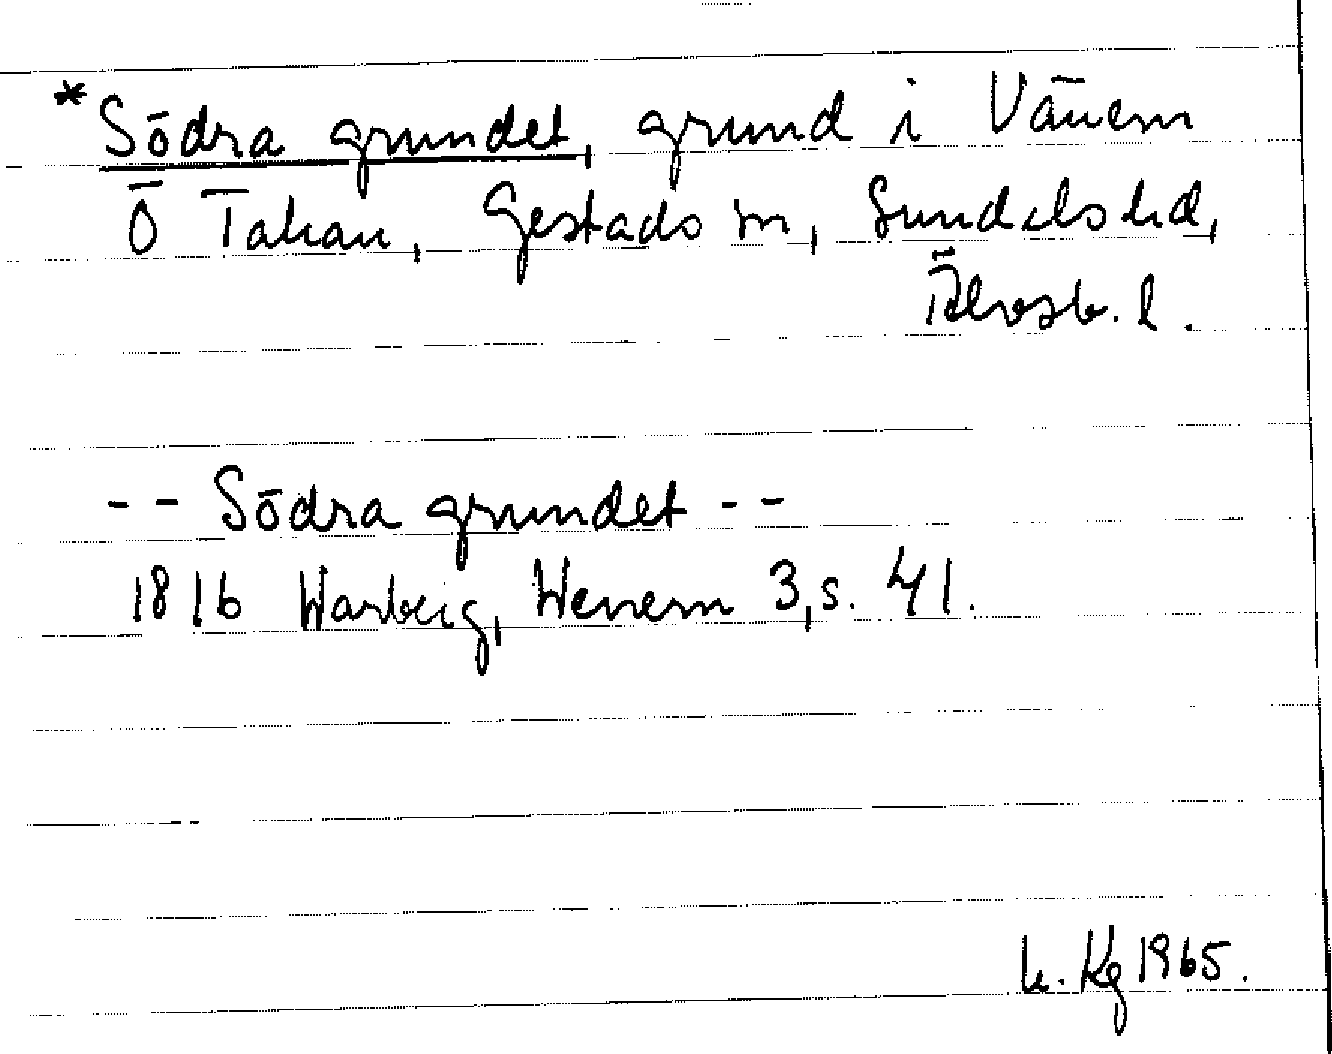 *Södra grundet, grund i Vänern
Ö Takan, Gestads sn, Sundals hd,
Älvsb. l.
-- Södra grundet --
1816 Warberg, Wenern 3, s. 41.
Kg 1965.